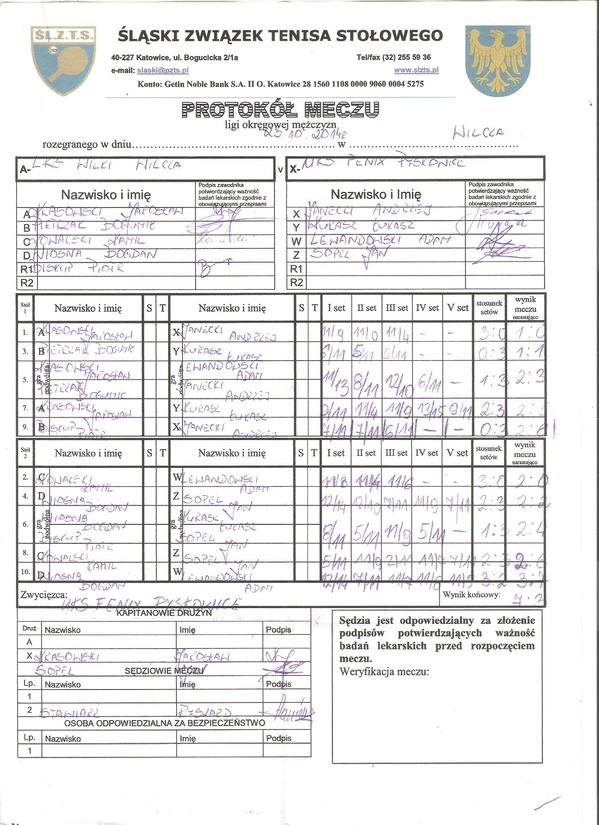 ŚL.Z.T.S.
ŚLĄSKI ZWIĄZEK TENISA STOŁOWEGO
40-227 Katowice, ul. Bogucicka 2/1a Tel/fax (32) 255 59 36
e-mail: slaski@pzts.pl www.slzts.pl
Konto: Getin Noble Bank S.A. II O. Katowice 28 1560 1108 0000 9060 0004 5275
PROTOKÓŁ MECZU
ligi okręgowej mężczyzn
rozegranego w dniu 25.10.2014r w WILCZA
A- LKS WILKI WILCZA v X- MKS FENIX PYSKOWICE
Nazwisko i imię Podpis zawodnika potwierdzający ważność badań lekarskich zgodnie z obowiązującymi przepisami Nazwisko i Imię Podpis zawodnika potwierdzający ważność badań lekarskich zgodnie z obowiązującymi przepisami
A KRASOWSKI JAROSŁAW X JANECKI ANDRZEJ
B PIETRZAK Y KURASZ ŁUKASZ
C KOWALSKI KAMIL W LEWANDOWSKI ADAM
D WIOSNA BOGDAN Z SOPEL JAN
R1 BISKUP PIOTR R1
R2 R2
Stół 1 Nazwisko i imię S T Nazwisko i imię S T I set II set III set IV set V set stosunek setów wynik meczu narastająco
1. A KRASOWSKI JAROSŁAW X JANECKI ANDRZEJ 11/9 11/4 - - 3:0 1:0
3. B PIETRZAK Y KURASZ ŁUKASZ 5/11 - - 0:3 1:1
5. gra podwójna KRASOWSKI JAROSŁAW LEWANDOWSKI ADAM
PIETRZAK JANECKI ANDRZEJ 11/13 8/11 12/10 6/11 - 1:3 2:3
7. A KRASOWSKI JAROSŁAW Y KURASZ ŁUKASZ 11/4 11/9 13/15 9/11 2:3
9. B BISKUP PIOTR X JANECKI ANDRZEJ 7/11 7/11 6/11 - - 0:3
Stół 2 Nazwisko i imię S T Nazwisko i imię S T I set II set III set IV set V set stosunek setów wynik meczu narastająco
2. C KOWALSKI KAMIL W LEWANDOWSKI ADAM 11/8 11/4 11/6 - - 3:0 2:0
4. D WIOSNA BOGDAN Z SOPEL JAN 12/14 7/11 11/9 7/11 2:3 2:2
6. gra podwójna WIOSNA BOGDAN KURASZ ŁUKASZ
BISKUP PIOTR SOPEL JAN 8/11 5/11 11/9 5/11 - 1:3 2:4
8. C KOWALSKI KAMIL Z SOPEL JAN 5/11 2:3
10. D WIOSNA BOGDAN W LEWANDOWSKI ADAM 12/14 7/11 3:2
Zwycięzca: MKS FENIX PYSKOWICE Wynik końcowy:
KAPITANOWIE DRUŻYN
Druż Nazwisko Imię Podpis
A
X KRASOWSKI JAROSŁAW
SOPEL JAN
SĘDZIOWIE MECZU
Lp. Nazwisko Imię Podpis
1
2 RYSZARD
OSOBA ODPOWIEDZIALNA ZA BEZPIECZEŃSTWO
Lp. Nazwisko Imię Podpis
1
Sędzia jest odpowiedzialny za złożenie
podpisów potwierdzających ważność
badań lekarskich przed rozpoczęciem
meczu.
Weryfikacja meczu: